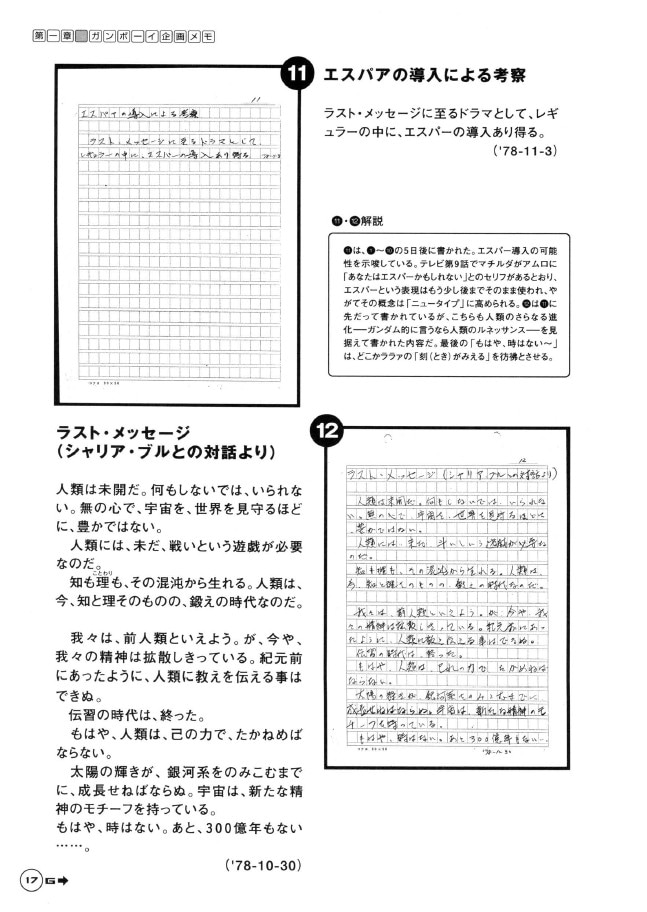 第一章 ガンボーイ企画メモ
11
エスパアの導入による考察
ラスト・メッセージに至るドラマとして、レギ
ュラーの中に、エスパーの導入あり得る。
('78-11-3)
11
エスパアの導入による考察
ラスト・メッセージに至るドラマとして、
レギュラーの中に、エスパーの導入あり得る。 '78-11-3
⓫・⓬解説
⓫は、❾〜❿の5日後に書かれた。エスパー導入の可能
性を示唆している。テレビ第9話でマチルダがアムロに
「あなたはエスパーかもしれない」とのセリフがあるとおり、
エスパーという表現はもう少し後までそのまま使われ、や
がてその概念は「ニュータイプ」に高められる。⓬は⓫に
先だって書かれているが、こちらも人類のさらなる進
化――ガンダム的に言うなら人類のルネッサンス――を見
据えて書かれた内容だ。最後の「もはや、時はない〜」
は、どこかララァの「刻(とき)がみえる」を彷彿とさせる。
ラスト・メッセージ
(シャリア・ブルとの対話より)
人類は未開だ。何もしないでは、いられな
い。無の心で、宇宙を、世界を見守るほど
に、豊かではない。
人類には、未だ、戦いという遊戯が必要
なのだ。
ことわり
知も理も、その混沌から生れる。人類は、
今、知と理そのものの、鍛えの時代なのだ。
我々は、前人類といえよう。が、今や、
我々の精神は拡散しきっている。紀元前
にあったように、人類に教えを伝える事は
できぬ。
伝習の時代は、終った。
もはや、人類は、己の力で、たかねめば
ならない。
太陽の輝きが、銀河系をのみこむまで
に、成長せねばならぬ。宇宙は、新たな精
神のモチーフを持っている。
もはや、時はない。あと、300億年もない
……。
('78-10-30)
12
12
ラスト・メッセージ(シャリア・ブルとの対話より)
人類は未開だ。何もしないでは、いられな
い。無の心で、宇宙を、世界を見守るほどに、
豊かではない。
人類には、未だ、戦いという遊戯が必要な
のだ。
知も理も、その混沌から生れる。人類は、
今、知と理そのものの、鍛えの時代なのだ。
我々は、前人類といえよう。が、今や、我
々の精神は拡散しきっている。紀元前にあっ
たように、人類に教えを伝える事はできぬ。
伝習の時代は、終った。
もはや、人類は、己の力で、たかねめば
ならない。
太陽の輝きが、銀河系をのみこむまでに、
成長せねばならぬ。宇宙は、新たな精神のモ
チーフを持っている。
もはや、時はない。あと300億年もない…
'78-10-30
17 G